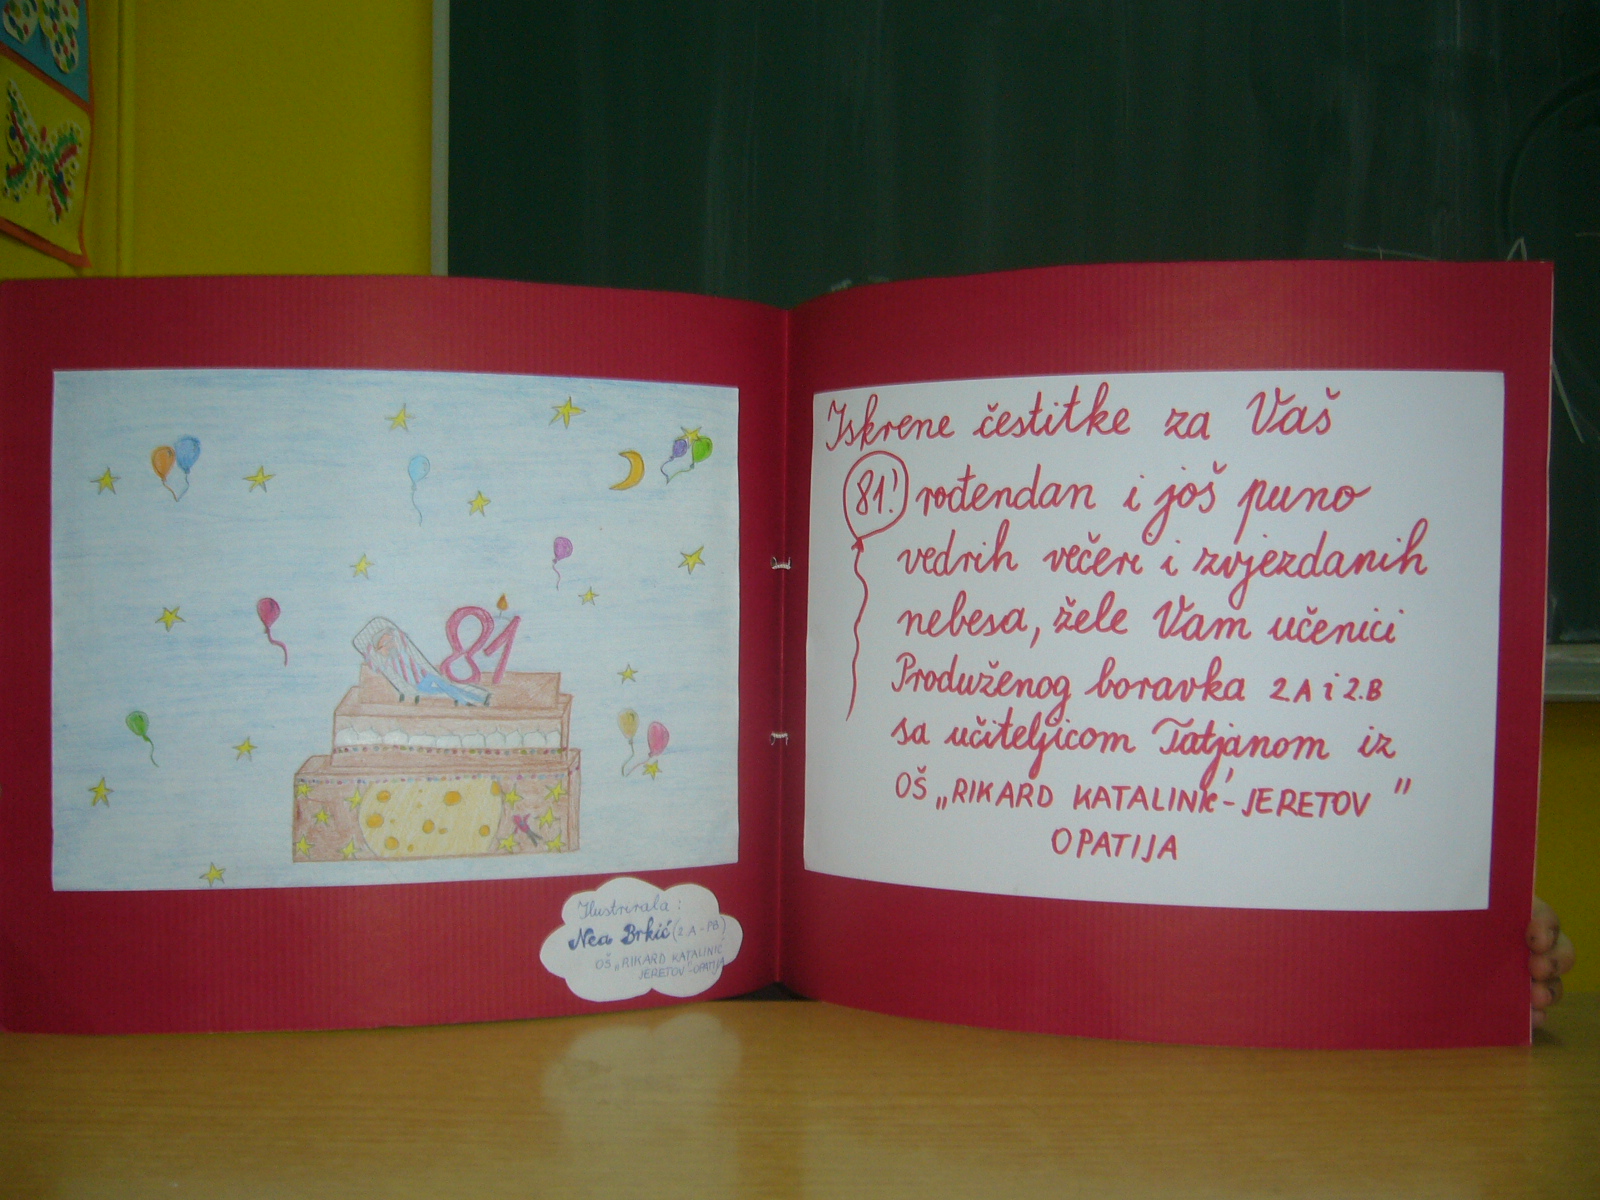 81
Ilustrirala:
Nea Brkić (2.A-PB)
OŠ „RIKARD KATALINIĆ
JERETOV"-OPATIJA
Iskrene čestitke za Vaš
81! rođendan i još puno
vedrih večeri i zvjezdanih
nebesa, žele Vam učenici
Produženog boravka 2.A i 2.B
sa učiteljicom Tatjanom iz
OŠ „RIKARD KATALINIĆ-JERETOV"
OPATIJA